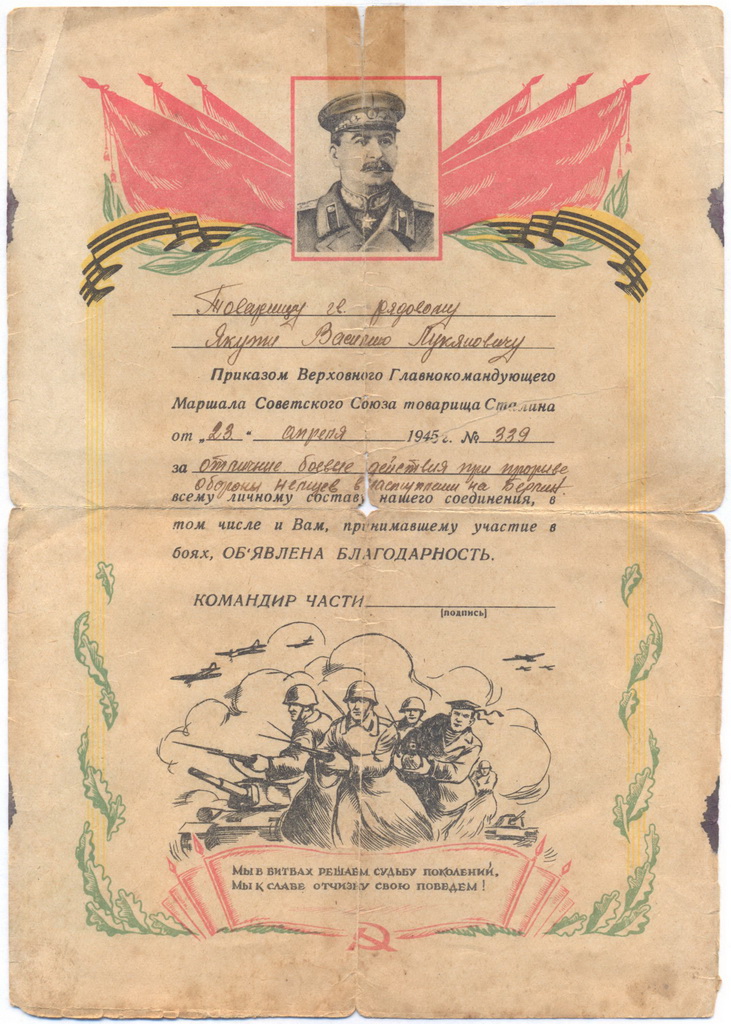 Товарищу гв. рядовому
Якути Василию Лукяновичу
Приказом Верховного Главнокомандующего
Маршала Советского Союза товарища Сталина
от „23“ апреля 1945 г. № 339
за отличные боевые действия при прорыве
обороны немцев и наступлении на Берлин
всему личному составу нашего соединения, в
том числе и Вам, принимавшему участие в
боях, ОБ'ЯВЛЕНА БЛАГОДАРНОСТЬ.
КОМАНДИР ЧАСТИ
[подпись]
МЫ В БИТВАХ РЕШАЕМ СУДЬБУ ПОКОЛЕНИЙ,
МЫ К СЛАВЕ ОТЧИЗНУ СВОЮ ПОВЕДЕМ!